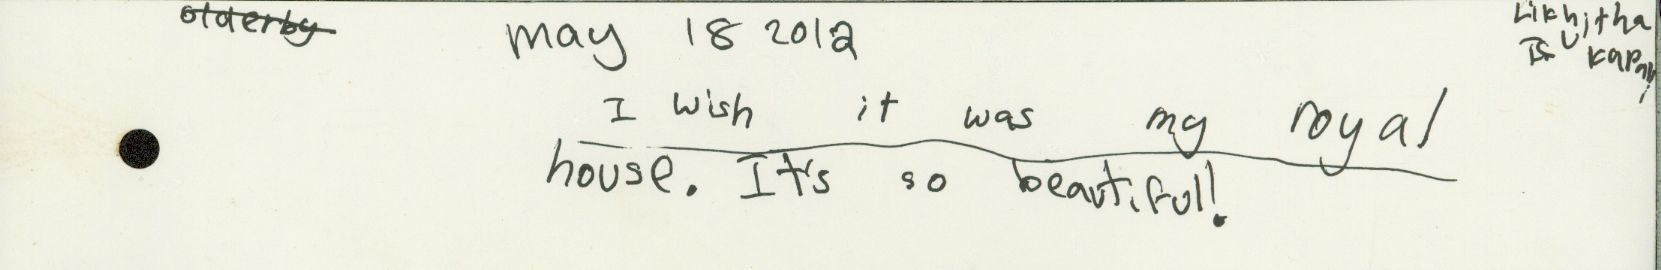 olderby
may 18 2012
Likhitha
I wish it was my royal
house. It's so beautiful!